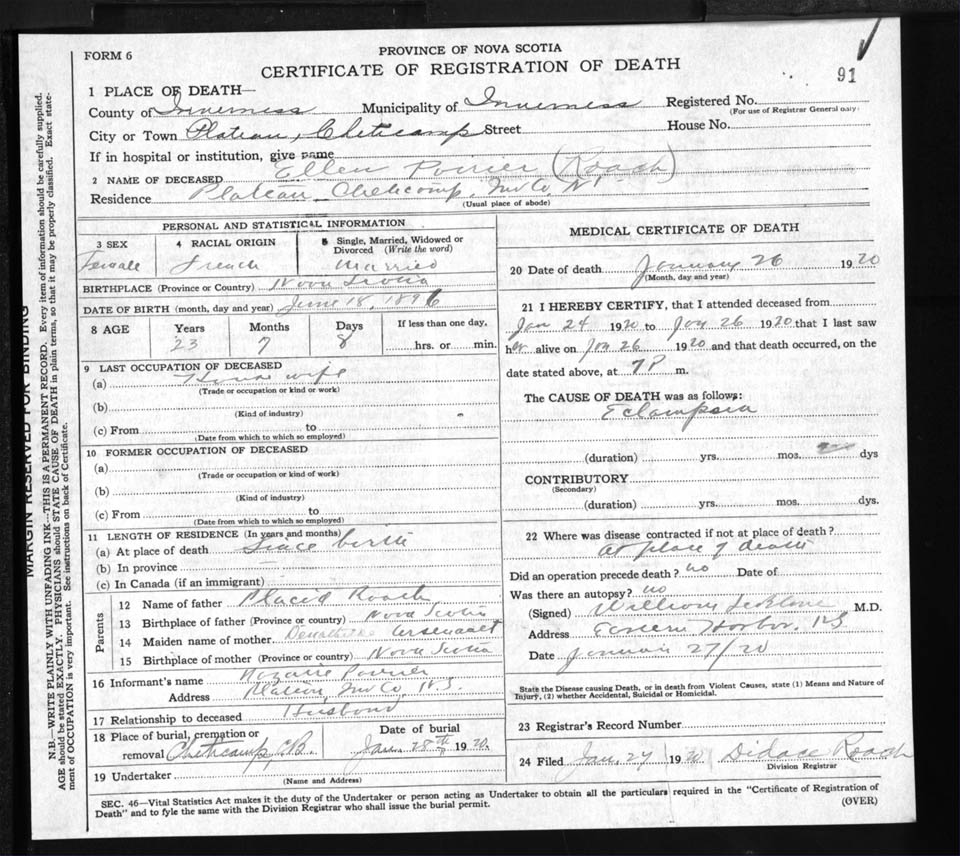 FORM 6
PROVINCE OF NOVA SCOTIA
CERTIFICATE OF REGISTRATION OF DEATH
91
1 PLACE OF DEATH—
County of Inverness Municipality of Inverness Registered No.
(For use of Registrar General only)
City or Town Plateau, Cheticamp Street House No.
If in hospital or institution, give name
2 NAME OF DECEASED Ellen Poirier (Roach)
Residence Plateau Cheticamp, Inv Co. N.S.
(Usual place of abode)
PERSONAL AND STATISTICAL INFORMATION
3 SEX 4 RACIAL ORIGIN 5 Single, Married, Widowed or Divorced (Write the word)
Female French Married
BIRTHPLACE (Province or Country) Nova Scotia
DATE OF BIRTH (month, day and year) June 18, 1896
8 AGE Years Months Days If less than one day,
23 7 8 hrs. or min.
9 LAST OCCUPATION OF DECEASED
(a) House wife
(Trade or occupation or kind or work)
(b)
(Kind of industry)
(c) From to
(Date from which to which so employed)
10 FORMER OCCUPATION OF DECEASED
(a)
(Trade or occupation or kind of work)
(b)
(Kind of industry)
(c) From to
(Date from which to which so employed)
11 LENGTH OF RESIDENCE (In years and months)
(a) At place of death Since birth
(b) In province —
(c) In Canada (if an immigrant)
Parents
12 Name of father Placid Roach
13 Birthplace of father (Province or country) Nova Scotia
14 Maiden name of mother Arsenault
15 Birthplace of mother (Province or country) Nova Scotia
16 Informant's name Nazaire Poirier
Address Plateau, Inv Co. N.S.
17 Relationship to deceased Husband
18 Place of burial, cremation or Date of burial
removal Cheticamp, C.B. Jan. 28th 1920
19 Undertaker
(Name and Address)
MEDICAL CERTIFICATE OF DEATH
20 Date of death January 26 1920
(Month, day and year)
21 I HEREBY CERTIFY, that I attended deceased from
Jan 24 1920 to Jan 26 1920 that I last saw
her alive on Jan 26 1920 and that death occurred, on the
date stated above, at 7 P m.
The CAUSE OF DEATH was as follows:
Eclampsia
(duration) yrs. mos. dys
CONTRIBUTORY
(Secondary)
(duration) yrs. mos. dys.
22 Where was disease contracted if not at place of death?
At place of death
Did an operation precede death? no Date of
Was there an autopsy? no
(Signed) William M.D.
Address Eastern Harbor, N.S
Date January 27/20
State the Disease causing Death, or in death from Violent Causes, state (1) Means and Nature of
Injury, (2) whether Accidental, Suicidal or Homicidal.
23 Registrar's Record Number
24 Filed Jan. 27 1920 Didace Roach
Division Registrar
SEC. 46—Vital Statistics Act makes it the duty of the Undertaker or person acting as Undertaker to obtain all the particulars required in the "Certificate of Registration of
Death" and to fyle the same with the Division Registrar who shall issue the burial permit.
(OVER)
MARGIN RESERVED FOR BINDING
N.B.—WRITE PLAINLY WITH UNFADING INK—THIS IS A PERMANENT RECORD. Every item of information should be carefully supplied.
AGE should be stated EXACTLY. PHYSICIANS should STATE CAUSE OF DEATH in plain terms, so that it may be properly classified. Exact state-
ment of OCCUPATION is very important. See instructions on back of Certificate.